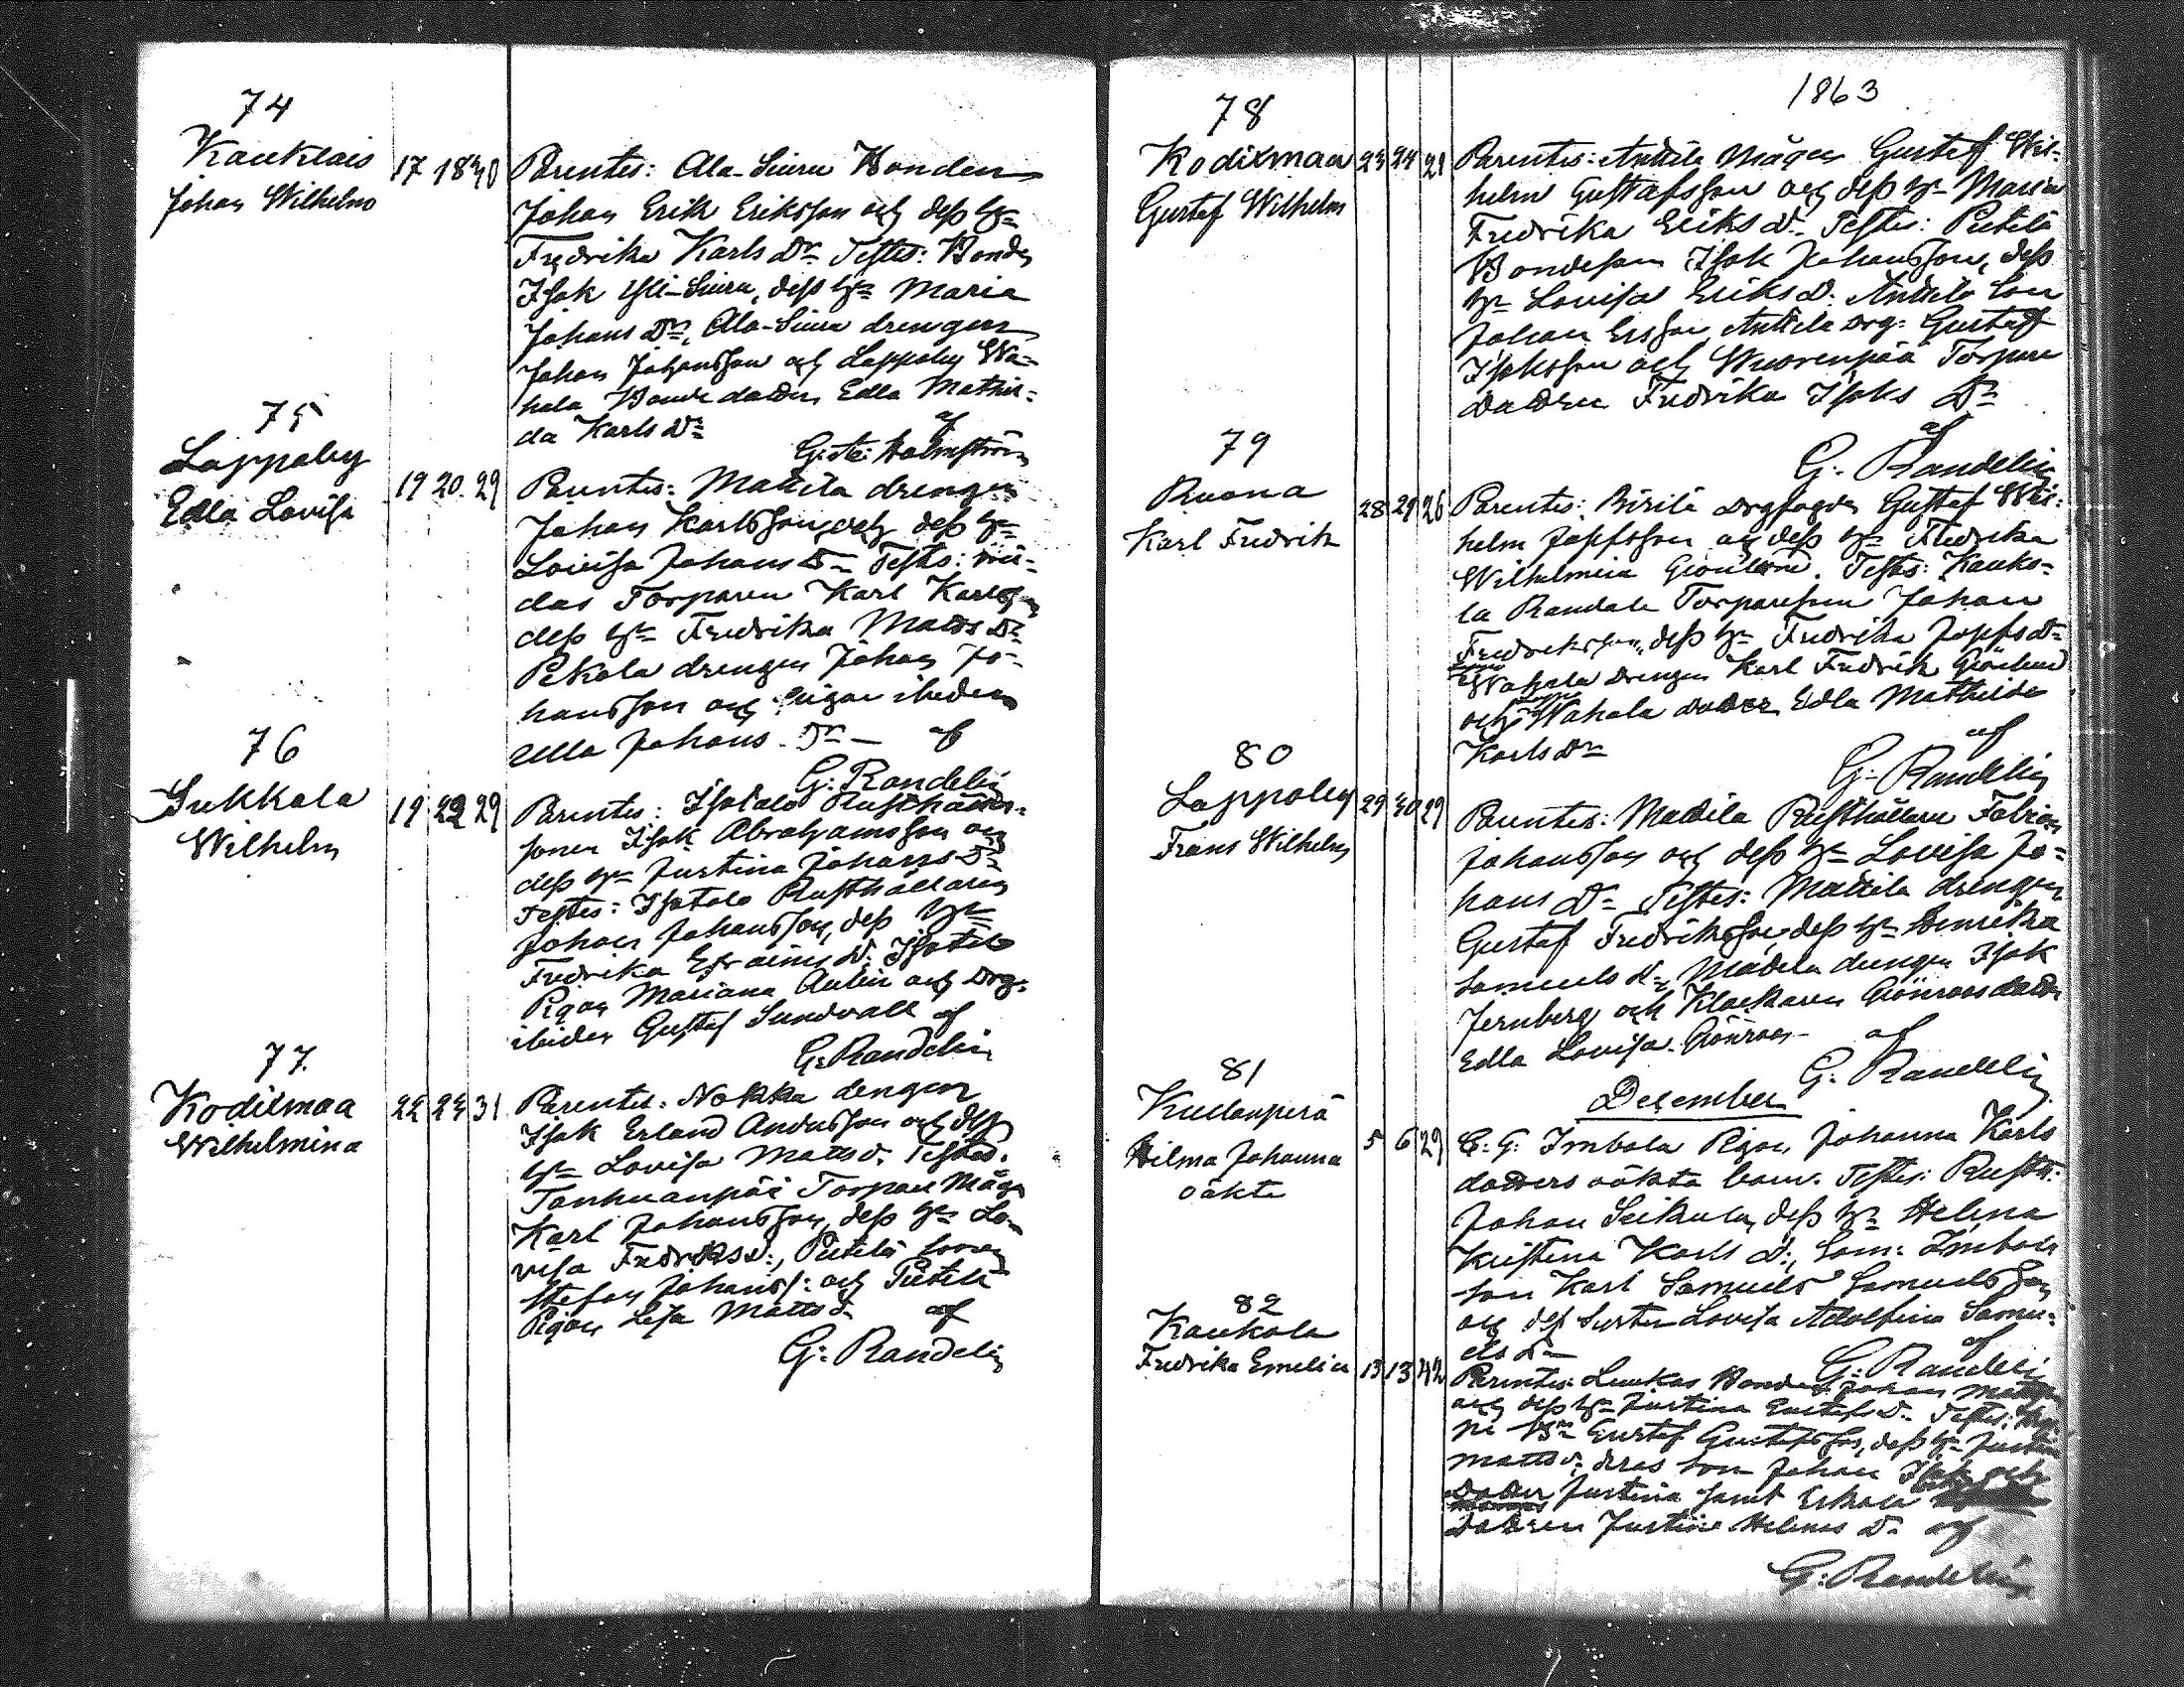 74
Kauklais
Johan Wilhelm
17 18 40
Parentes: Ala-Siuru Bonden
Johan Erik Eriksson och dess H:
Fredrika Karls Dr. Testes: Bonden
Isak Yli-Siuru, dess H: Maria
Johans Dr, Ala-Siuru drengen
Johan Johansson och Lappoby Wa-
hala Bonde dottern Edla Mathil-
da Karls Dr
af
Holmström
75
Lappoby
Edla Lovisa
19 20 29
Parentes: Mattila drengen
Johan Karlsson och dess H:
Lovisa Johans D. Testes:
das Torparen Karl Karlsson
dess H: Fredrika Matts Dr
Pekola drengen Johan Jo-
hansson och Pigan ibidem
Ulla Johans Dr — af
G: Randelin
76
Sukkala
Wilhelm
19 22 29
Parentes: Isotalo Rusthållar-
sonen Isak Abrahamsson och
dess H: Justina Johans D.
Testes: Isotalo Rusthållaren
Johan Johansson, dess H:
Fredrika Efraims D. Isotalo
Pigan Mariana och Drg:
ibidem Gustaf Sundvall af
G: Randelin
77.
Kodixmaa
Wilhelmina
22 24 31
Parentes: Nokka dengen
Isak Erland Andersson och dess
H: Lovisa Matts D. Testes.
Tanhuanpää Torpare Mågen
Karl Johansson, dess H: Lo-
visa Fredriks D., Pietilä sonen
Stefan Johanss: och Pietilä
Pigan Lisa Matts D. af
G: Randelin
1863
78
Kodixmaa
Gustaf Wilhelm
23 24 29
Parentes: Anttila Mågen Gustaf Wil-
helm Gustafsson och dess H: Maria
Fredrika Eriks D. Testes: Pietilä
Bondeson Isak Johansson, dess
H: Lovisa Eriks D. Anttila Son
Johan Ersson Anttila Drg: Gustaf
Isaksson och Wuorenpää Torpare
Dottren Fredrika Isaks Dr
af
G: Randelin
79
Ruona
Karl Fredrik
28 29 26
Parentes: Birilä Drgfogden Gustaf Wil-
helm Josefsson och dess H: Fredrika
Wilhelmina Grönlund. Testes: Kauko-
la Randala Torparesonen Johan
Fredriksson, dess H: Fredrika Josefs D.
Wahala Drengen Karl Fredrik Grönlund
och Wahala Dotter Edla Mathilda
Karls Dr
af
G: Randelin
80
Lappoby
Frans Wilhelm
29 30 29
Parentes: Mattila Rusthållare Fabian
Johansson och dess H: Lovisa Jo-
hans D. Testes: Mattila drengen
Gustaf Fredriksson, dess H: Henrika
Samuels D., Mattila drengen Isak
Jernberg och Klockaren Grönroos dotter
Edla Lovisa Grönroos — af
G: Randelin
December
81
Kullanperä
Hilma Johanna
oäkta
5 6 29
E. G: Imbola Pigan Johanna Karls
dotters oäkta barn. Testes: Rusth:
Johan Seikula, dess H: Helena
Kristina Karls D., Sam: Imbola
Son Karl Samuel Samuelsson
och dess Syster Lovisa Adolfina Samu-
els D.
af
G: Randelin
82
Kaukola
Fredrika Emelia
13 13 42
Parentes: Luukas Bonden Johan Mattsson
och dess H: Justina Gustafs D. Testes:
Gustaf Gustafsson, dess H: Justina
Matts D., deras Son Johan Isak och
Dotter Justina samt Eskola
Dottren Justina Helena D. af
G: Randelin